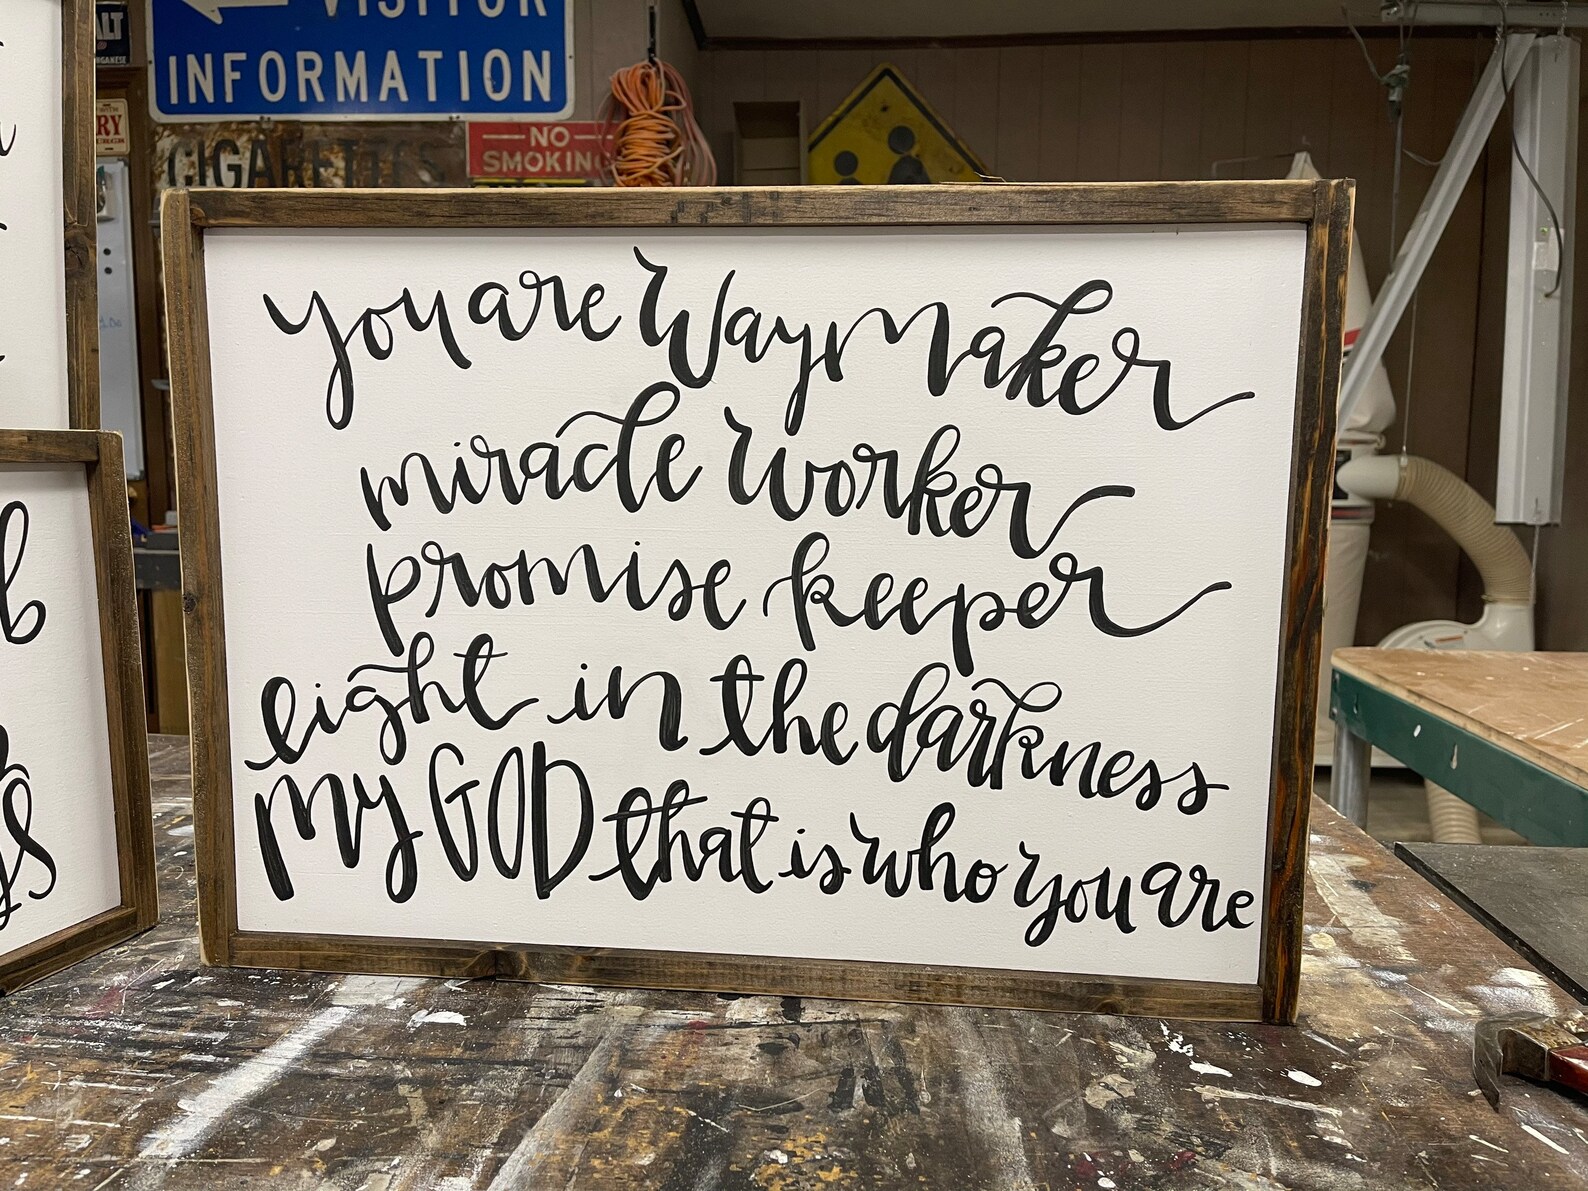 VISITOR
INFORMATION
RY
CIGARETTES
NO
SMOKING
you are Way Maker
miracle worker
promise keeper
light in the darkness
My GOD that is who you are